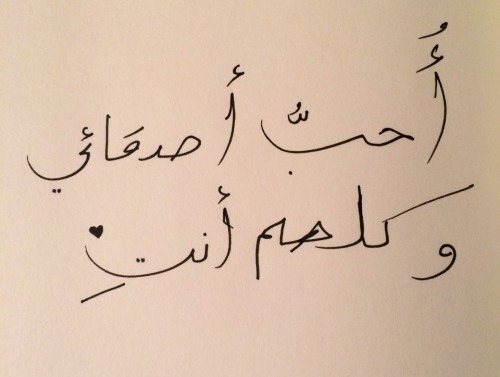 أُحبُّ أصدقَائي
وكلهم أنتِ ♥